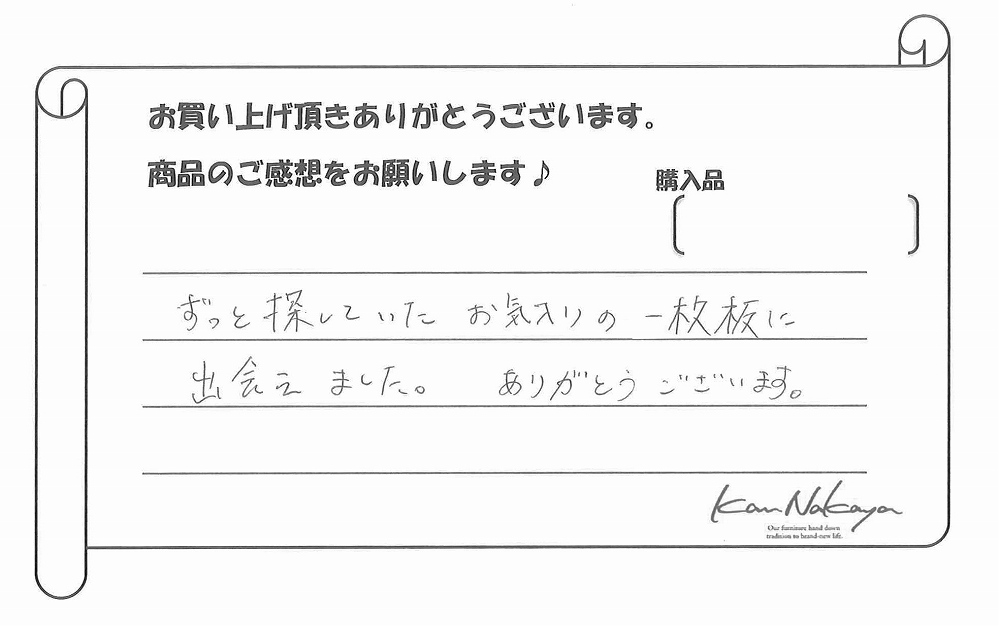 お買い上げ頂きありがとうございます。
商品のご感想をお願いします♪
購入品
ずっと探していた お気入りの 一枚板に
出会えました。 ありがとうございます。
Kan Nakaya
Our furniture hand down
tradition to brand-new life.